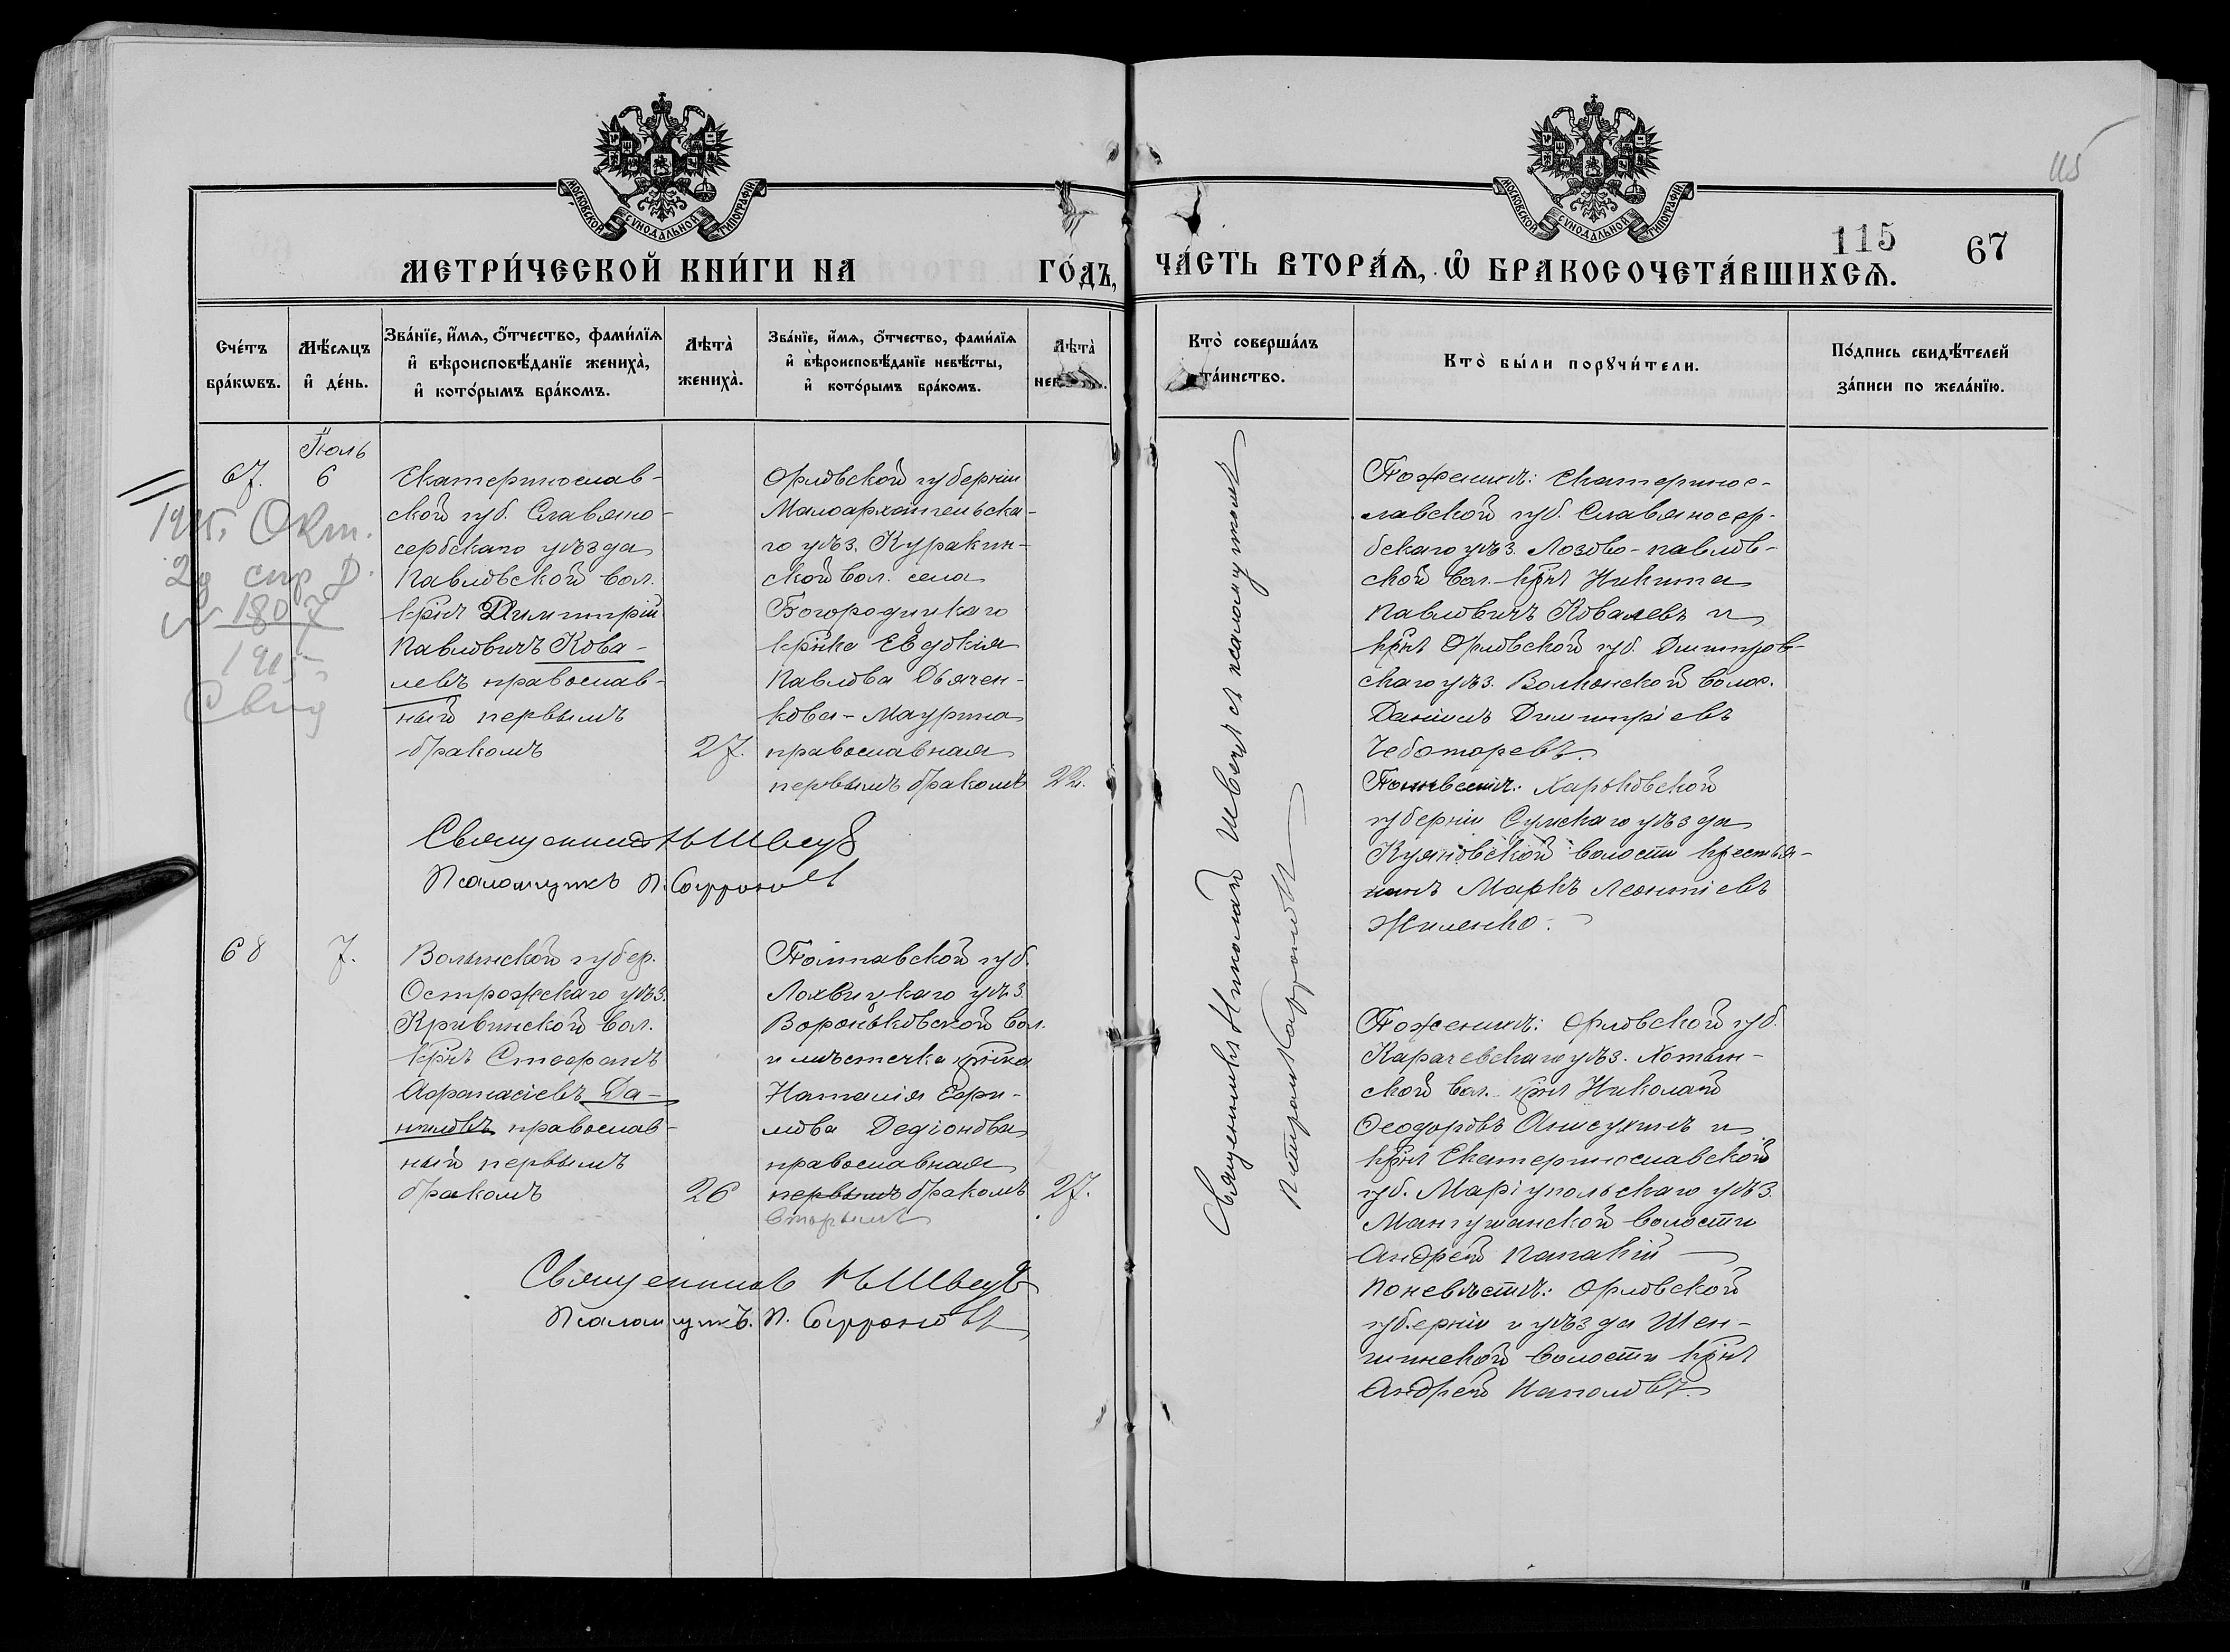 115
МОСКОВСКОЙ СѴНОДАЛЬНОЙ ТИПОГРАФІИ
МОСКОВСКОЙ СѴНОДАЛЬНОЙ ТИПОГРАФІИ
115 67
МЕТРИ́ЧЕСКОЙ КНИ́ГИ НА ГО́ДЪ, ЧА́СТЬ ВТОРА́Ѧ, Ѡ҆ БРАКОСОЧЕТА́ВШИХСѦ.
Сче́тъ
бра́кѡвъ.
Мѣ́сяцъ
и҆ де́нь.
Зва́нїе, и҆́мѧ, ѻ҆́тчество, фами́лїѧ
и҆ вѣроисповѣ́данїе жениха̀,
и҆ кото́рымъ бра́комъ.
Лѣта̀
жениха̀.
Зва́нїе, и҆́мѧ, ѻ҆́тчество, фами́лїѧ
и҆ вѣроисповѣ́данїе невѣ́сты,
и҆ кото́рымъ бра́комъ.
Лѣта̀
нев
Кто̀ соверша́лъ
та́инство.
Кто̀ бы́ли порꙋчи́тели.
По́дпись свидѣ́телей
за́писи по жела́нїю.
67.
Іюль
6
1915. Окт.
2д стр Д.
№ 1807
1915
Свид
Екатеринослав-
ской губ. Славяно-
сербскаго уѣзда
Павловской вол.
крнъ Димитрій
Павловичъ Кова-
левъ православ-
ный первымъ
бракомъ
27.
Орловской губерніи
Малоархангельска-
го уѣз. Куракин-
ской вол. села
Богородицкаго
крнка Евдокія
Павлова Дьячен-
кова-Маурина
православная
первымъ бракомъ
22.
Священникъ Н Швецъ
Псаломщикъ П. Софроновъ
Священникъ Николай Швецъ съ псаломщикомъ
Петромъ Софроновъ
По женихѣ: Екатеринос-
лавской губ. Славяносер-
бскаго уѣз. Лозово-павлов-
ской вол. крнъ Никита
Павловичъ Ковалевъ и
крнъ Орловской губ. Дмитров-
скаго уѣз. Волконской волос.
Даніилъ Димитріевъ
Чеботаревъ.
По невѣстѣ: Харьковской
губерніи Сумскаго уѣзда
Куяновской волости крестья-
нинъ Маркъ Леонтіевъ
Жиленко.
68
7.
Волынской губер.
Острожскаго уѣз.
Кривинской вол.
крнъ Стефанъ
Афанасіевъ Да-
ниловъ православ-
ный первымъ
бракомъ
26
Полтавской губ.
Лохвицкаго уѣз.
Вороньковской вол.
и мѣстечка крнка
Наталія Ефи-
мова Дедіонова
православная
первымъ бракомъ
вторымъ
27.
Священникъ Н Швецъ
Псаломщикъ. П. Софроновъ
По женихѣ: Орловской губ.
Карачевскаго уѣз. Хотын-
ской вол. крнъ Николай
Ѳеодоровъ Анисукинъ и
крнъ Екатеринославской
губ. Маріупольскаго уѣз.
Мангушской волости
Андрей Папакій
По невѣстѣ: Орловской
губерніи и уѣзда Шен-
шинской волости крнъ
Андрей Наполовъ.